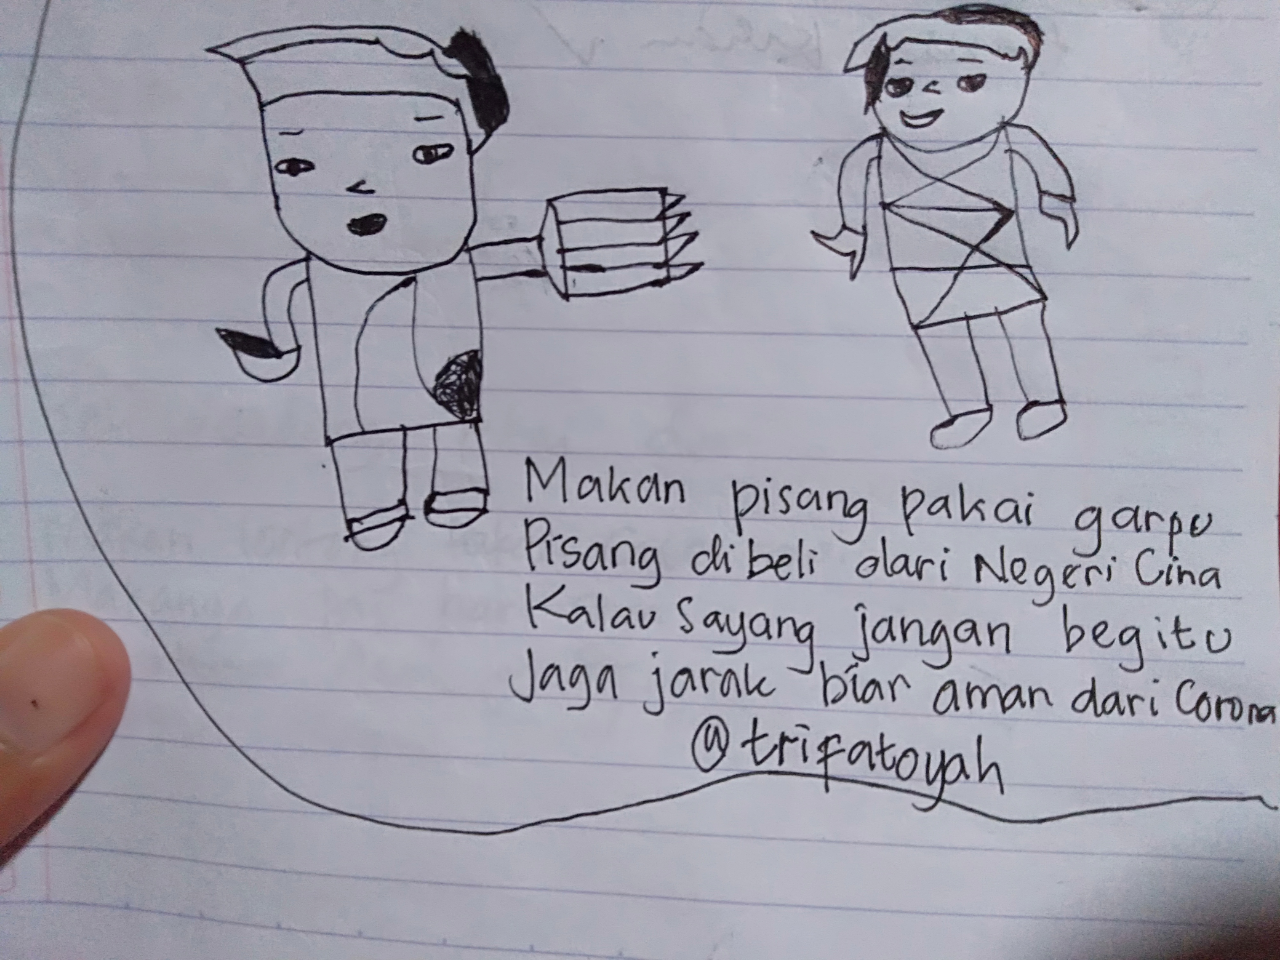 Makan pisang pakai garpu
Pisang dibeli dari Negeri Cina
Kalau sayang jangan begitu
Jaga jarak biar aman dari Corona
@trifatoyah